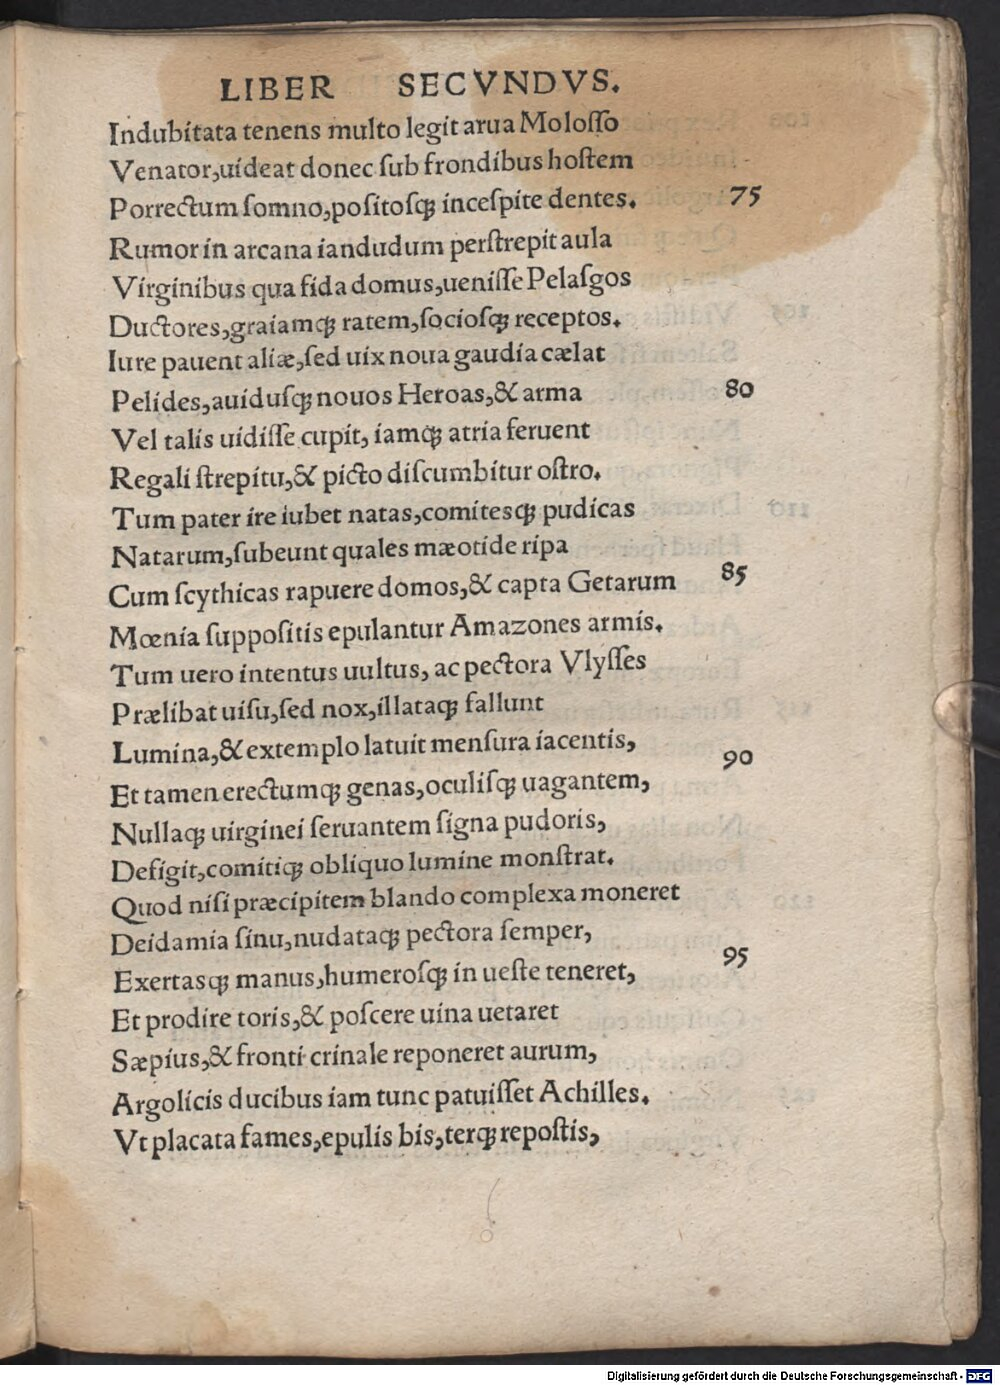 LIBER SECVNDVS.
Indubitata tenens multo legit arua Moloſſo
Venator,uideat donec ſub frondibus hoſtem
Porrectum ſomno,poſitoſq; inceſpite dentes. 75
Rumor in arcana iandudum perſtrepit aula
Virginibus qua fida domus,ueniſſe Pelaſgos
Ductores,graiamq; ratem,ſocioſq; receptos.
Iure pauent aliæ,ſed uix noua gaudia cælat
Pelides,auiduſq; nouos Heroas,& arma 80
Vel talis uidiſſe cupit, iamq; atria feruent
Regali ſtrepitu,& picto diſcumbitur oſtro.
Tum pater ire iubet natas,comitesq; pudicas
Natarum,ſubeunt quales mæotide ripa
Cum ſcythicas rapuere domos,& capta Getarum 85
Mœnia ſuppoſitis epulantur Amazones armis.
Tum uero intentus uultus, ac pectora Vlyſſes
Prælibat uiſu,ſed nox,illataq; fallunt
Lumina,& extemplo latuit menſura iacentis,
Et tamen erectumq; genas,oculiſq; uagantem, 90
Nullaq; uirginei ſeruantem ſigna pudoris,
Defigit,comitiq; obliquo lumine monſtrat.
Quod niſi præcipitem blando complexa moneret
Deidamia ſinu,nudataq; pectora ſemper,
Exertasq; manus,humeroſq; in ueſte teneret, 95
Et prodire toris,& poſcere uina uetaret
Sæpius,& fronti crinale reponeret aurum,
Argolicis ducibus iam tunc patuiſſet Achilles.
Vt placata fames,epulis bis,terq; repoſtis,
Digitalisierung gefördert durch die Deutsche Forschungsgemeinschaft - DFG